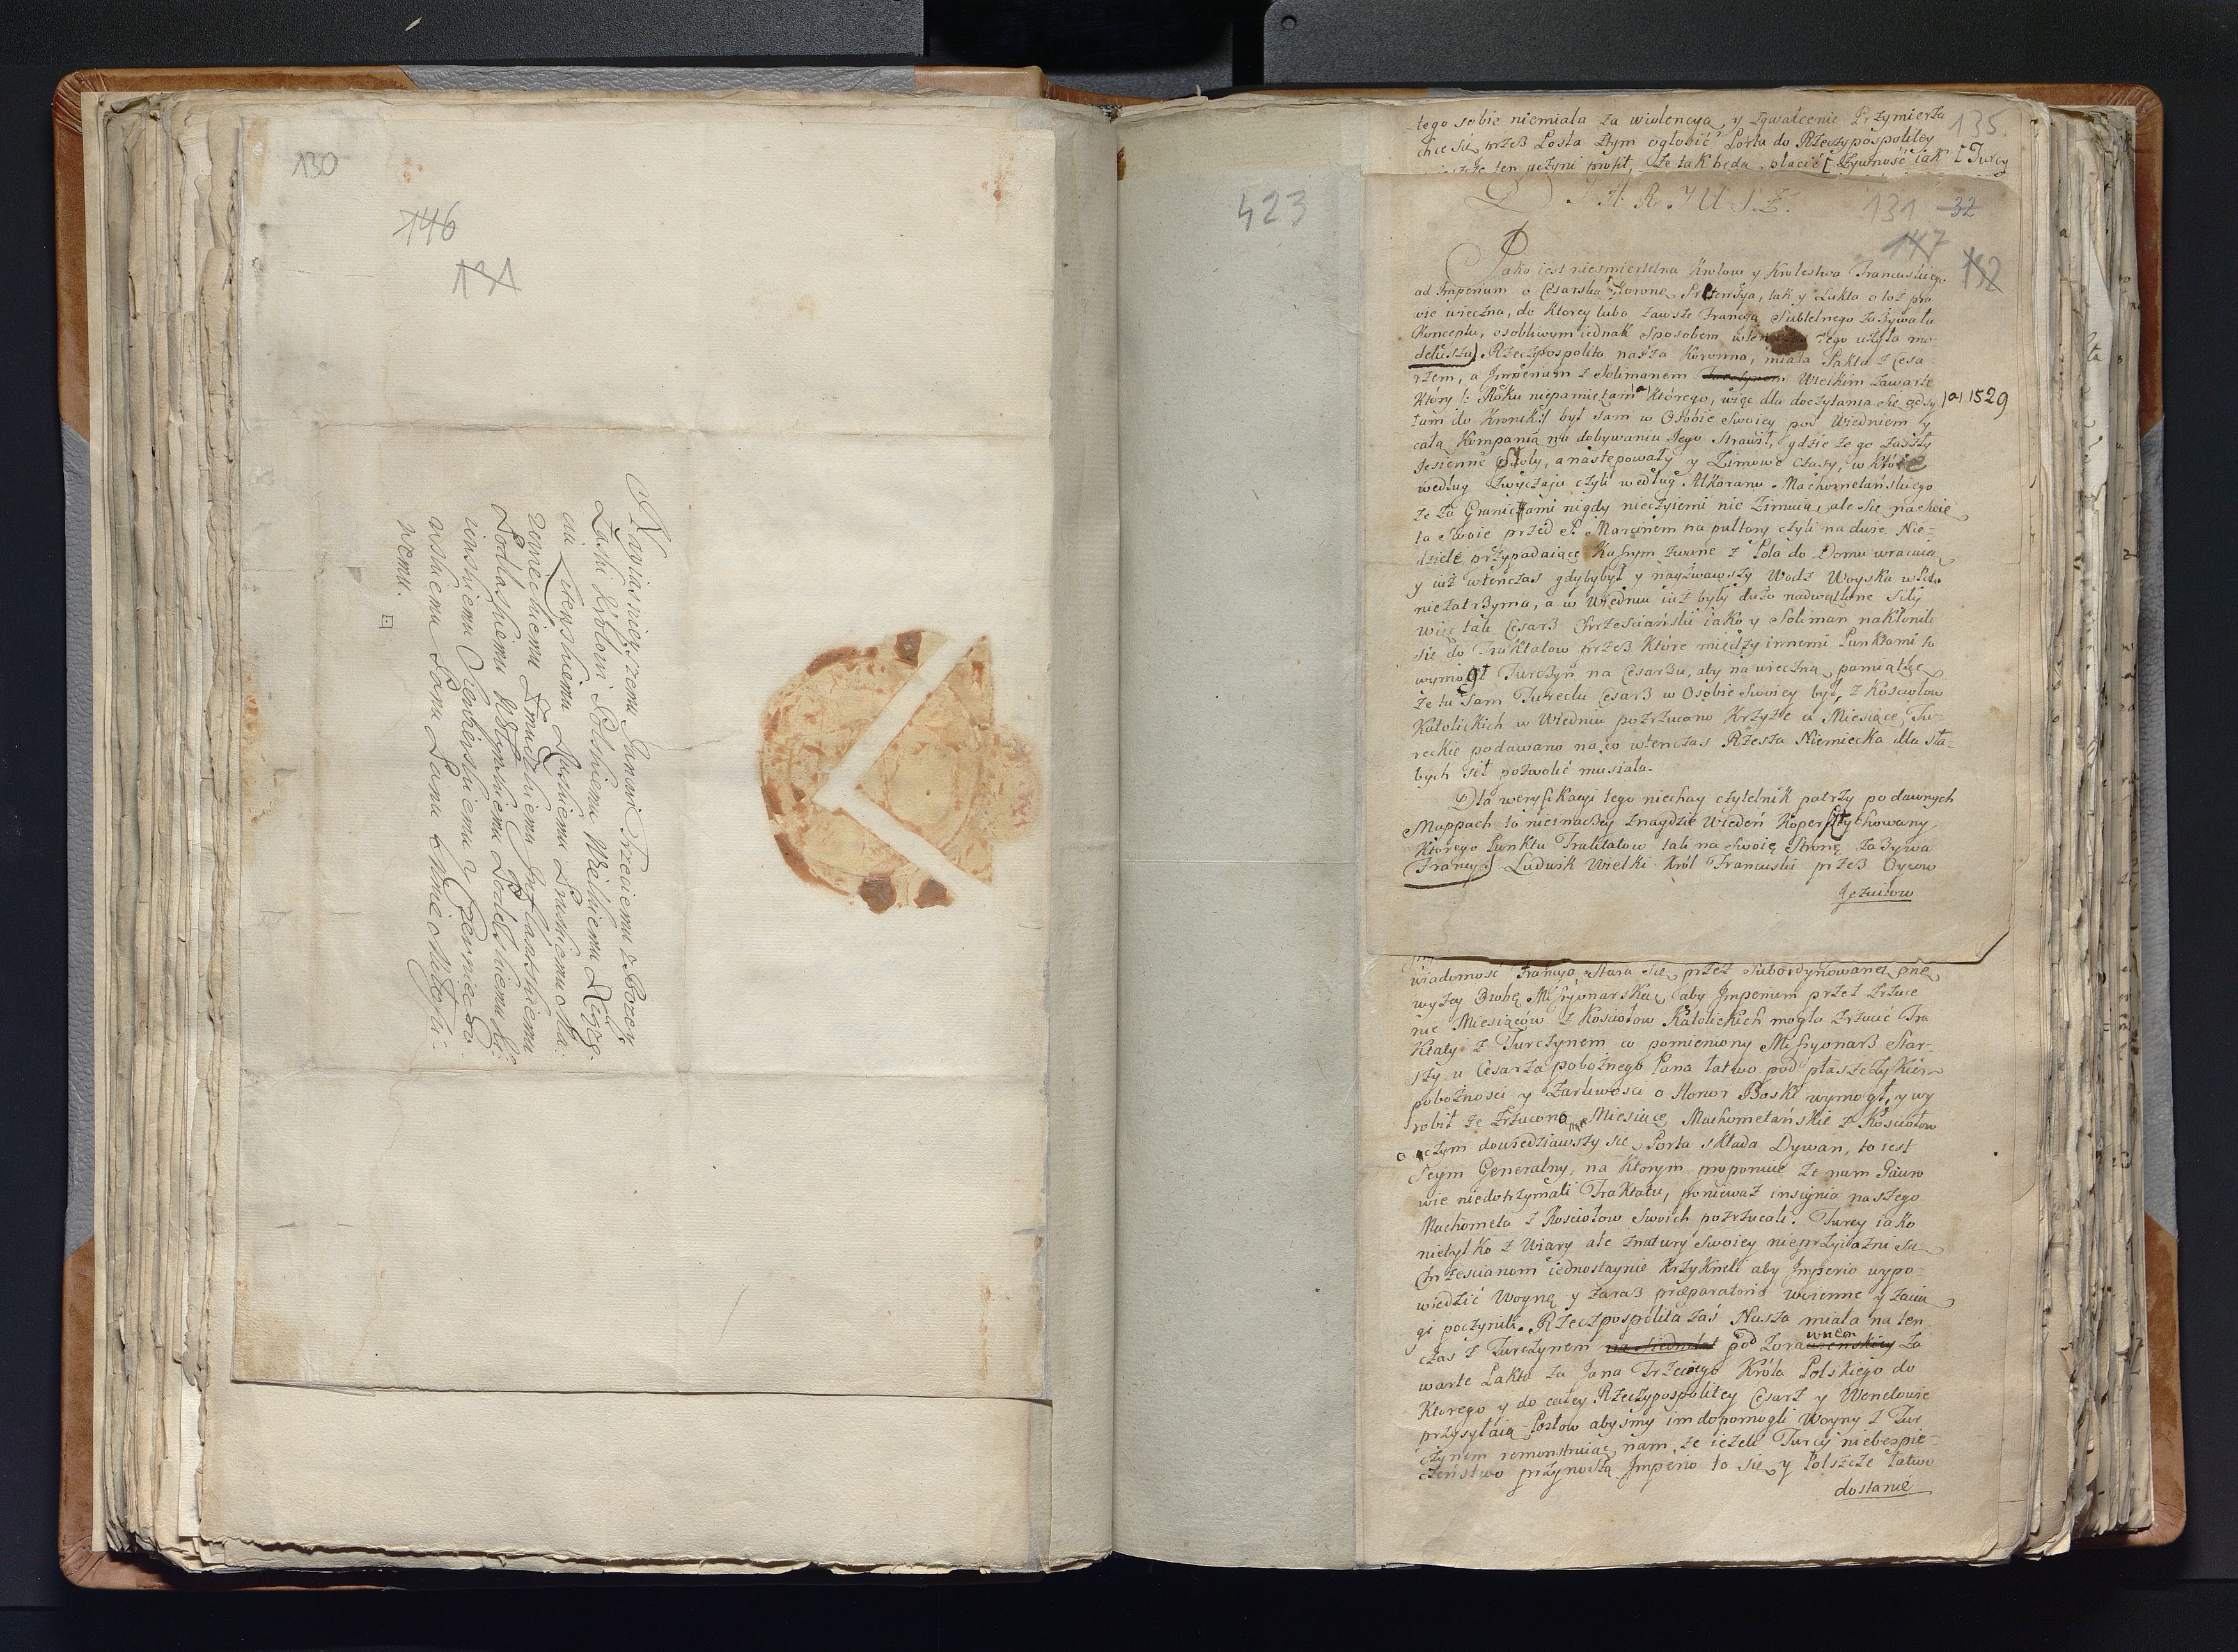 130
146
131
Nayiasnieyszemu Janowi Trzeciemu z Bozey
Łaski Królowi Polskiemu Wielkiemu Xięzę-
ciu Litewskiemu Ruskiemu Pruskiemu Ma:
zowieckiemu Zmudzkiemu Inflantskiemu
Podlaskiemu Wołynskiemu Podolskiemu Ki:
iowskiemu
wskiemu Panu Panu Mnie Miłości:
wemu.
423
tego sobie niemiała za wiolencyą y zgwałcenie Przymierza
chce się przeß Posta ztym ogłosić Porta do Rzeczypospolitey
ten uczyni profit, że tak będą płacić [żywność iak [Turcy
135
DYARYUSZ.
131 32
147
132
Jako iest niesmiertelna Krolow y Krolestwa Francuskiego
ad Imperium o Cesarską Koronę Pretensya, tak y Pakta o toż pra
wie wieczna, do ktorey lubo zawsze Francya Subtelnego zażywała
Konceptu, osobliwym iednak Sposobem tego użyła mo-
deluszu). Rzeczpospolita nasza Koronna, miała Pakta z Cesa-
rzem, a Imperium z Solimanem Turczynem Wielkim zawarte
Który /: Roku niepamiętam |a| którego, więc dla doczytania się odsy |a| 1529
łam do Kroniki :/ był sam w Osobie Swoiey pod Wiedniem y
całą Kompanią na dobywaniu Jego Strawił, gdzie że go zaszły
Jesienne Słoty, a następowały y Zimowe czasy, w które
według Zwyczaju czyli według Alkoranu Machometańskiego
że za Granicami nigdy nieczyiemi nie Zimuią, ale się na święta
ta Swoie przed S. Marcinem na pułtory czyli na dwie Nie-
dziele przypadaiące Kasym zwane z Pola do Domu wracaią
y iuż wtenczas gdybybył y nayżwawszy Wodz Woyska w Polu
niezatrzyma, a w Wiedniu iuż były dużo nadwątlone Siły
więc tak Cesarß Chrześciański iako y Soliman nakłonili
się do Traktatow przeß które między innemi Punktami to
wymógł Turczyn na Cesarßu, aby na wieczną pamiątkę
że tu sam Turecki Cesarß w Osobie Swoiey był, z Kosciołow
Katolickich w Wiedniu pozrzucano Krzyże a Miesiące Tu-
reckie podawano na co wtenczas Rzesza Niemiecka dla sła-
bych sił pozwolić musiała.
Dla weryfikacyi tego niechay czytelnik patrzy po dawnych
Mappach to nieinaczey znaydzie Wiedeń Kopersztychowany
Którego Punktu Traktatow tak na Swoię Stronę zażywa
Francya) Ludwik Wielki Król Francuski przeß Oycow
Jezuitow
wiadomość Francya Stara się, przez Subordynowaną
wyzey Osobę Missyonarską aby Imperium przez Zrzuce
nie Miesięców z Kosciołow Katolickich mogło zrzucić Tra
ktaty z Turczynem co pomieniony Missyonarß Star-
szy u Cesarza pobożnego Pana łatwo pod płaszczykiem
pobożnosci y Żarliwosci o Honor Boski wymogł, y wy
robił że Zrzucono Miesiące Machometańskie z Kosciołow
o czym dowiedziawszy się Porta składa Dywan, to iest
Seym Generalny, na ktorym proponuie że nam Giauro
wie niedotrzymali Traktatu, ponieważ insignia naszego
Machometa z Kosciołow Swoich pozrzucali. Turcy iako
nietylko z Wiary ale z natury Swoiey nieprzyiaźni są
Chrześcianom iednostaynie krzyknęli aby Imperio wypo-
wiedzić Woynę y zaraß præparatoria woienne y zacią
gi poczynili. Rzeczpospolita zaś Nasza miała na ten
czas z Turczynem pod Zorawnem za
warte Pakta za Jana Trzeciego Króla Polskiego do
Ktorego y do całey Rzeczypospolitey Cesarz y Wenetowie
przysyłaią Posłow abysmy im dopomogli Woyny z Tur
czynem remonstruiąc nam, że ieżeli Turcy niebespie-
czeństwo przynoszą Imperio to się y Polszcze łatwo
dostanie